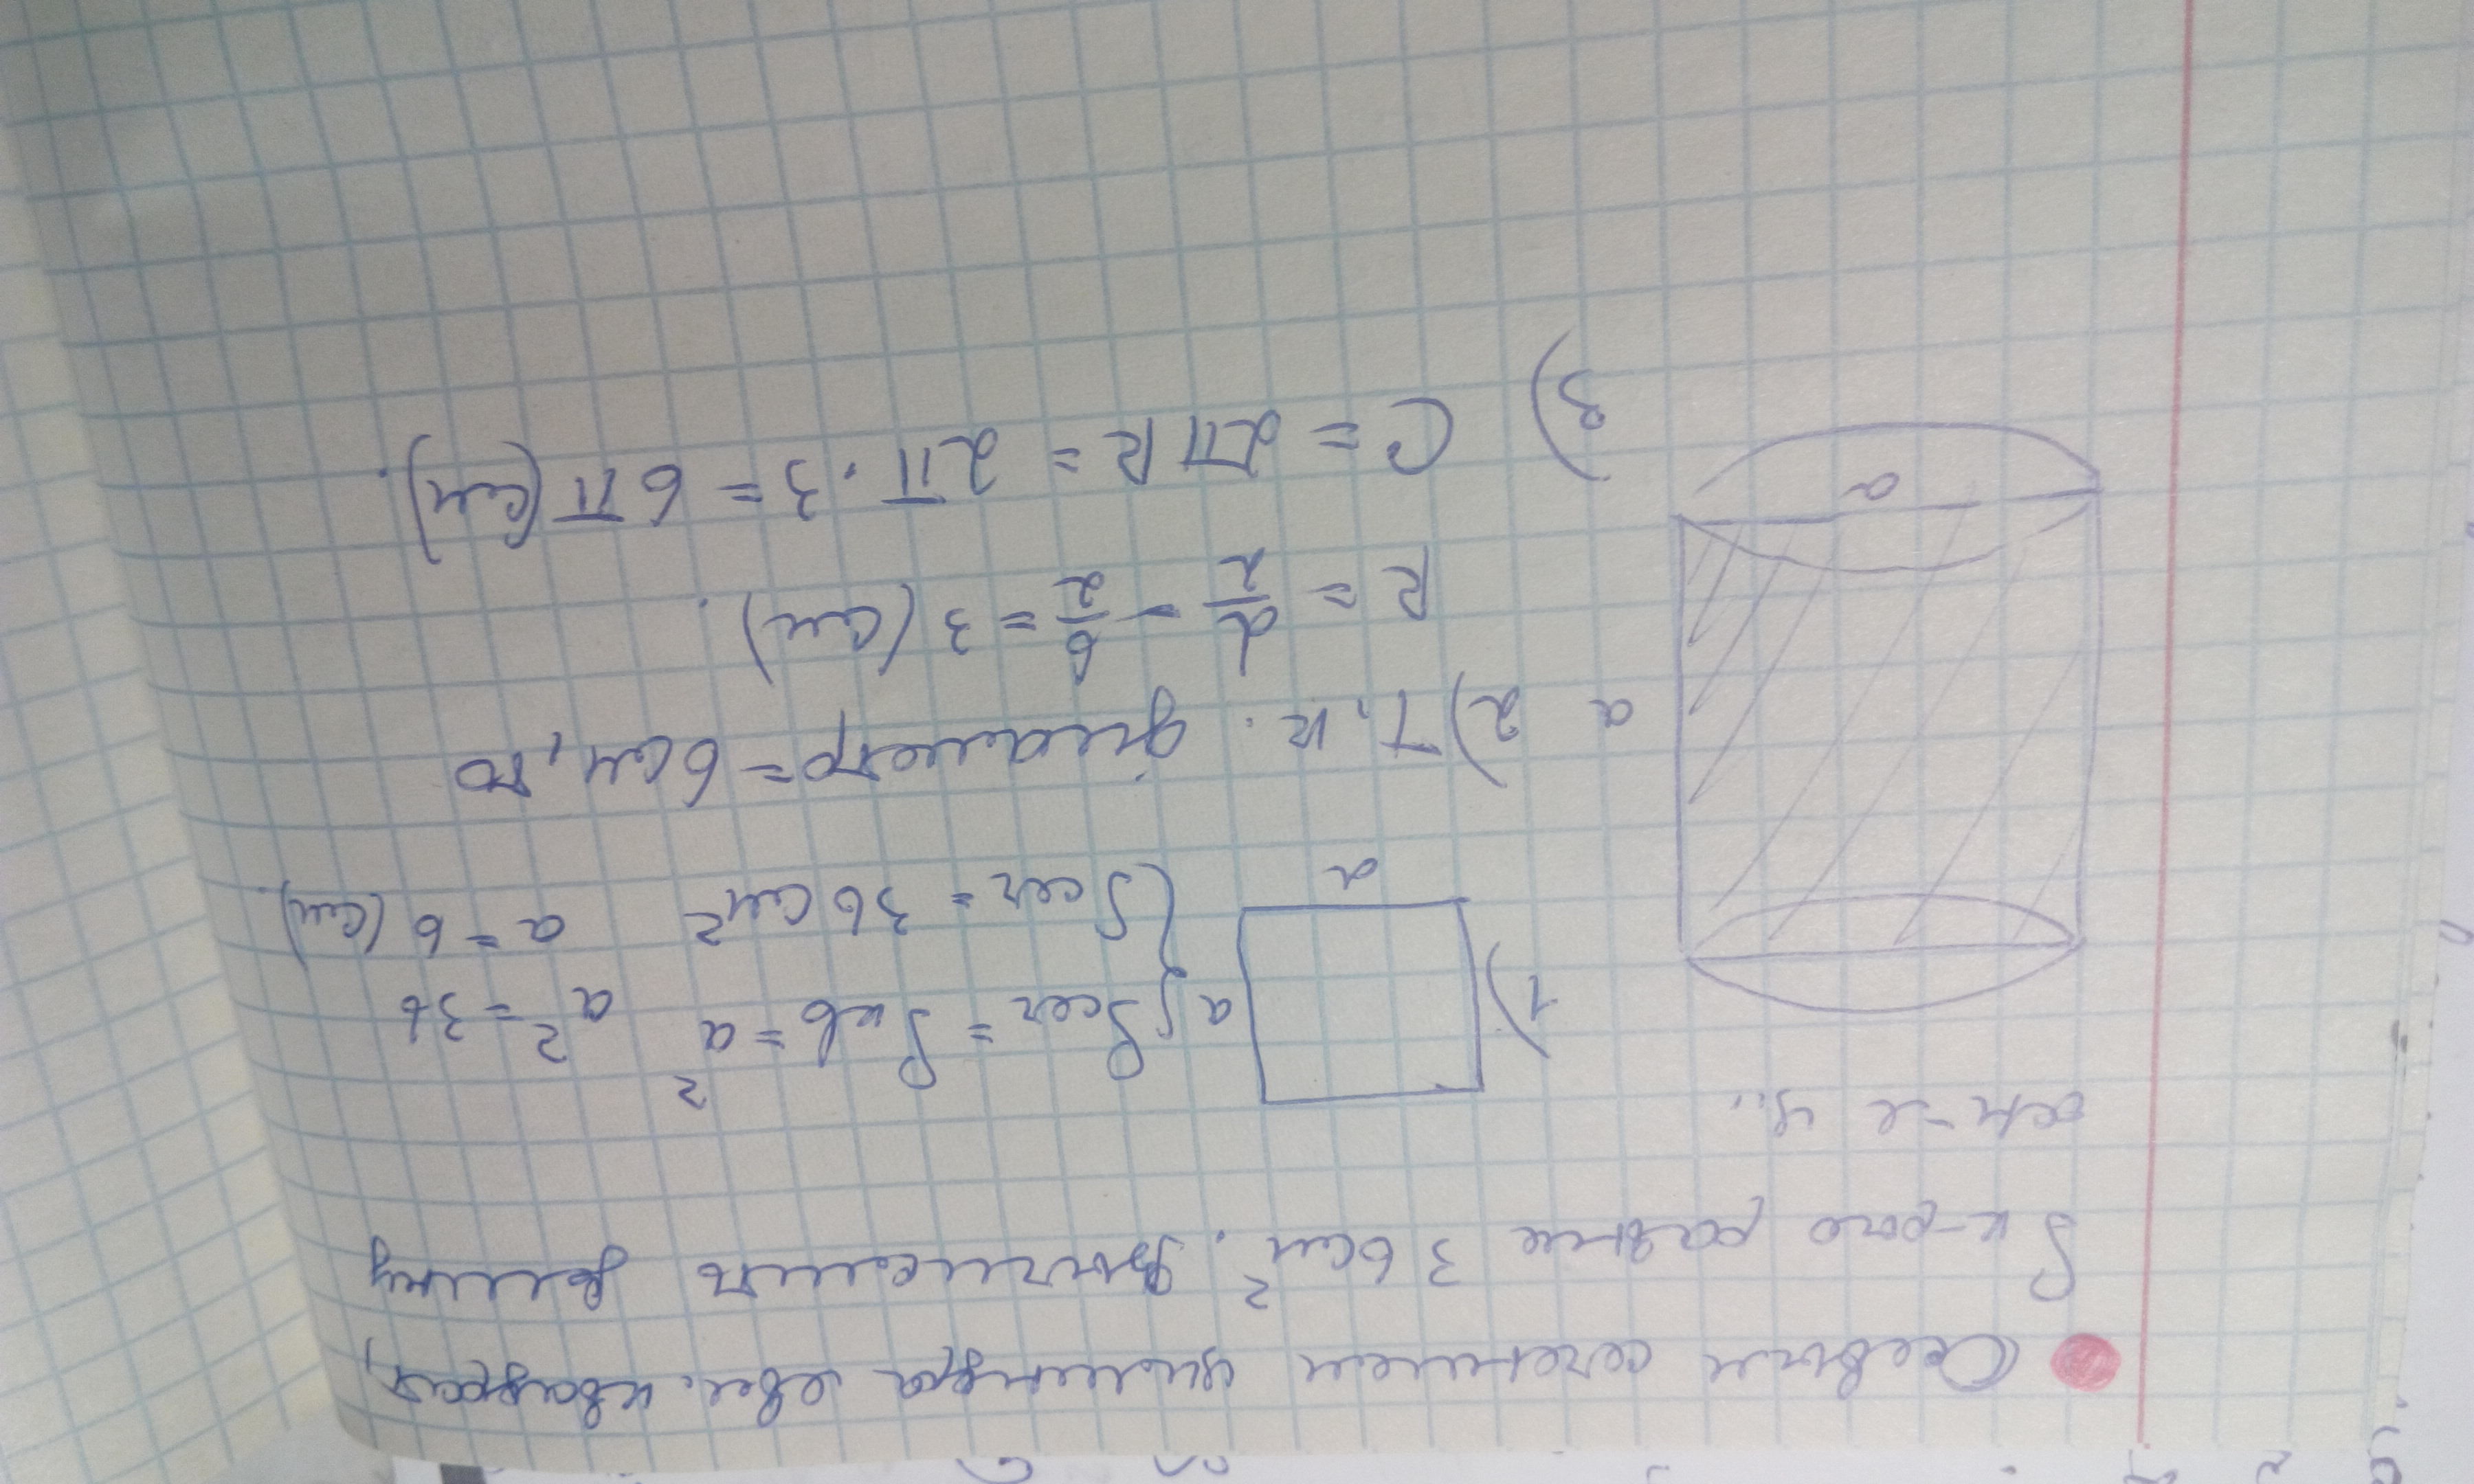 Осевым сечением цилиндра явл. квадрат,
S к-рого равна 36см². Вычислить длину
окр-е ц..
1) a { Sсеч = Sкв = a² a² = 36
Sсеч = 36 см² a = 6 (см).
a
a 2) Т.к. диаметр = 6см, то
R = d/2 = 6/2 = 3 (см).
a
3) C = 2πR = 2π·3 = 6π (см).